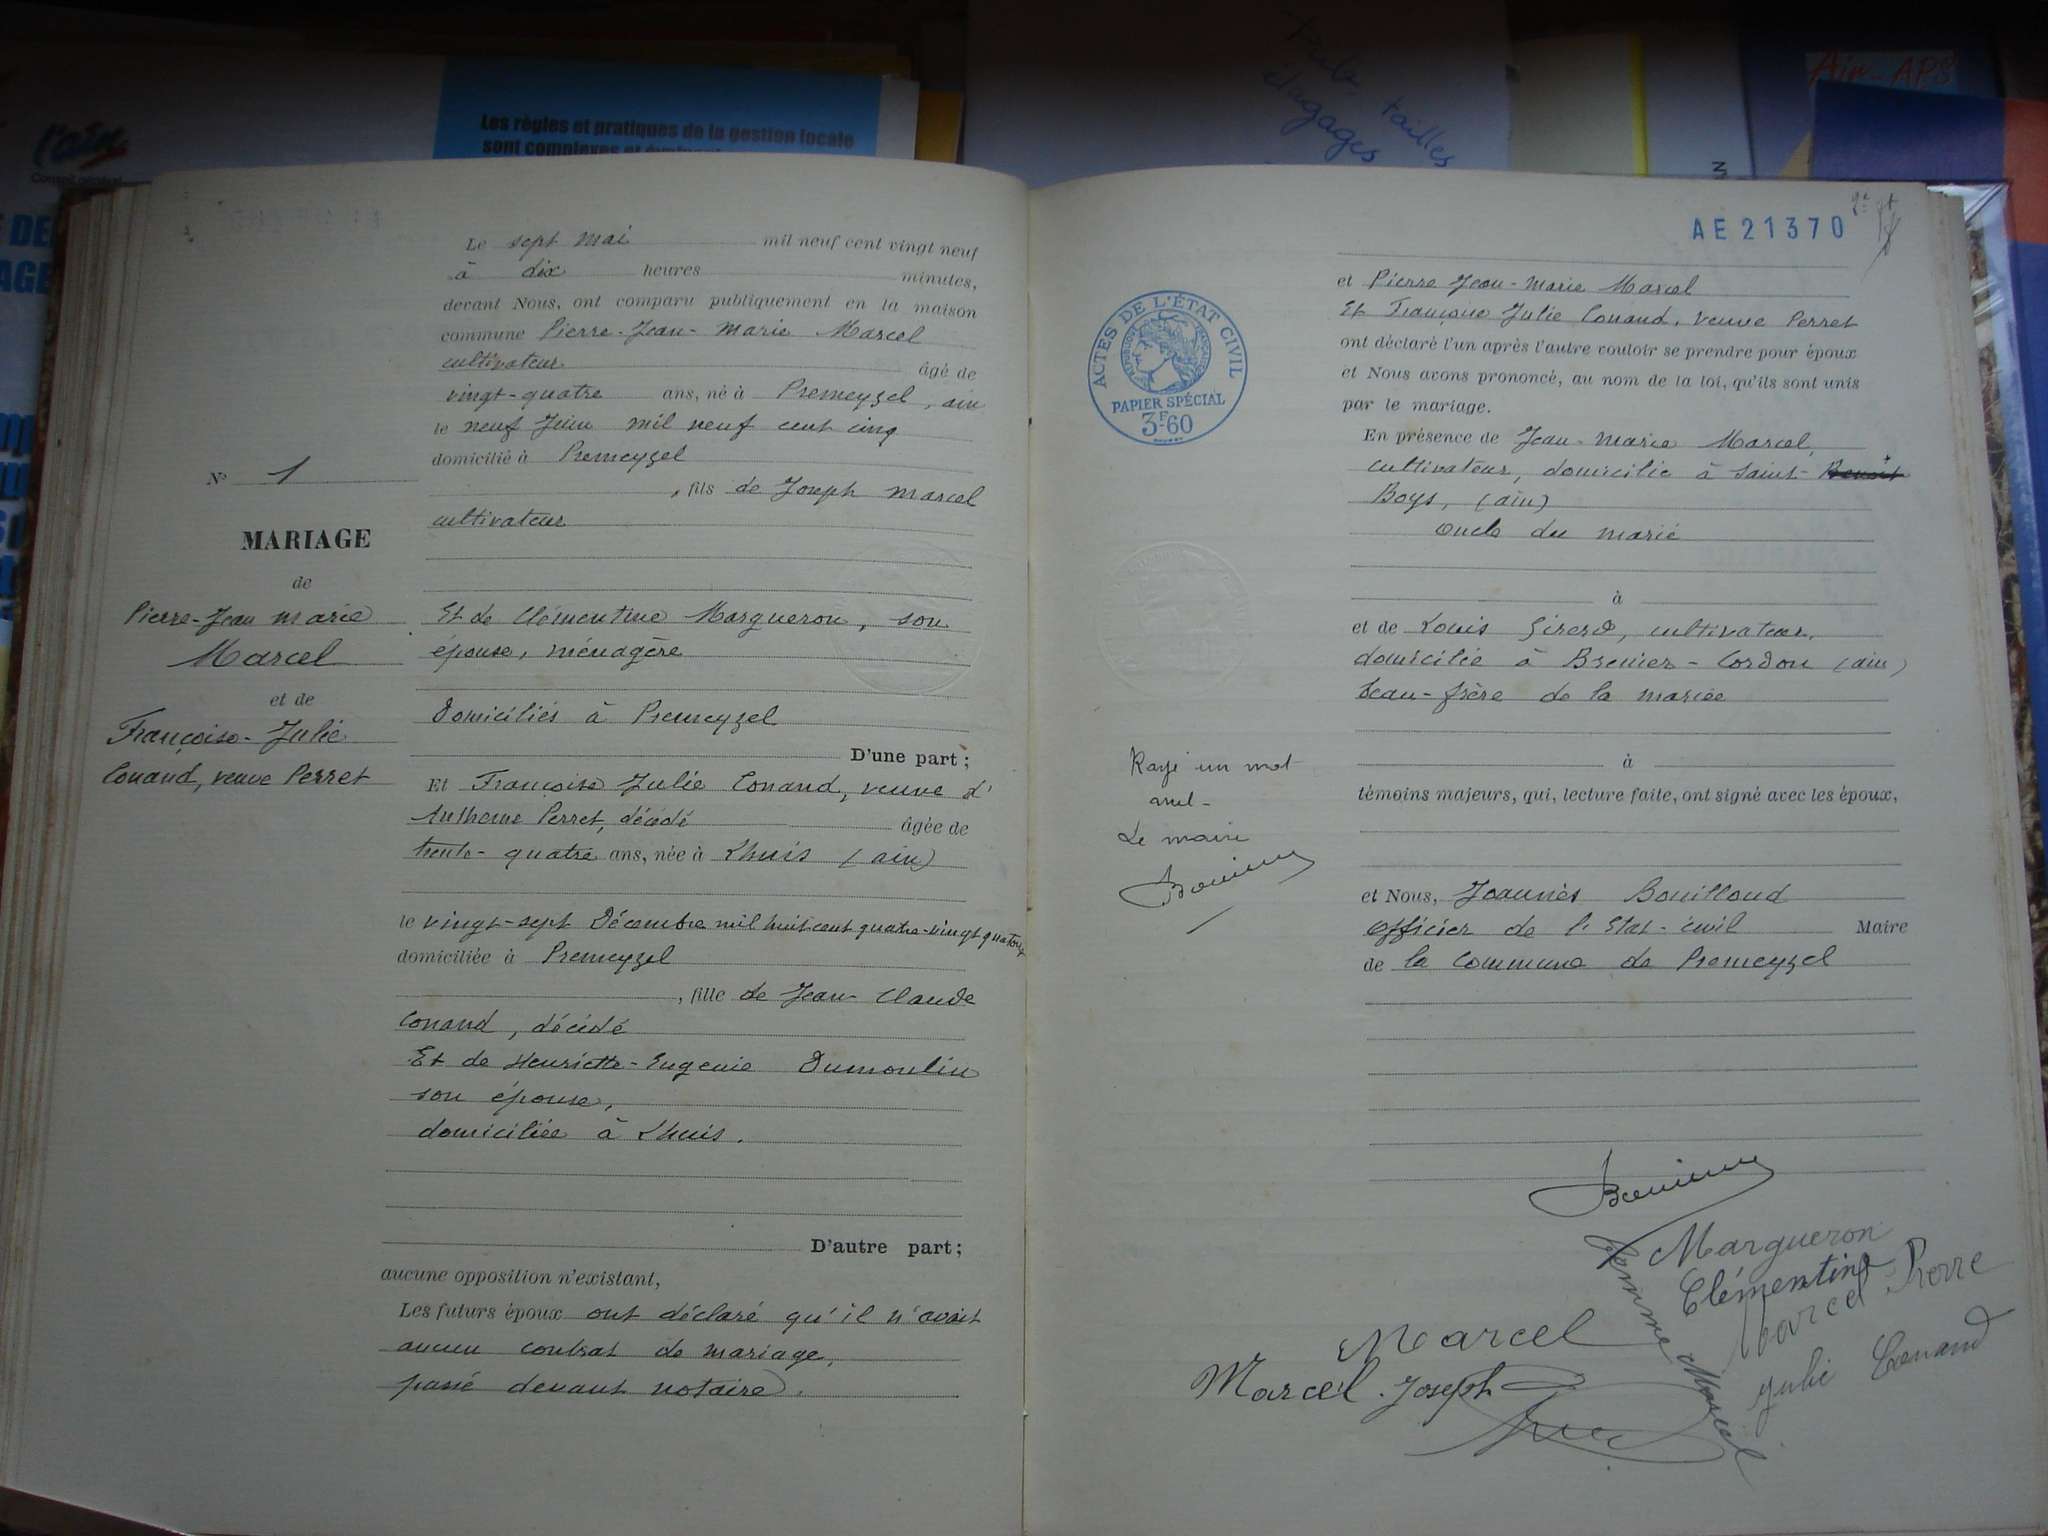 l'ain
Conseil général
Les règles et pratiques de la gestion locale
sont complexes et
tailles
élagages
Ain-APS
AE 21370
Le sept mai mil neuf cent vingt neuf
à dix heures minutes,
devant Nous, ont comparu publiquement en la maison
commune Pierre-Jean-Marie Marcel
cultivateur âgé de
vingt-quatre ans, né à Premeyzel, ain
le neuf Juin mil neuf cent cinq
domicilié à Premeyzel
, fils de Joseph Marcel
cultivateur
Et de Clémentine Margueron, son
épouse, ménagère
Domiciliés à Premeyzel
D'une part;
Et Françoise Julie Conand, veuve d'
Anthelme Perret, décédé âgée de
trente-quatre ans, née à Lhuis (ain)
le vingt-sept Décembre mil huit cent quatre-vingt quatorze
domiciliée à Premeyzel
, fille de Jean-Claude
Conand, décédé
Et de Henriette-Eugenie Dumoulin
son épouse,
domiciliée à Lhuis.
D'autre part;
aucune opposition n'existant,
Les futurs époux ont déclaré qu'il n'avait
aucun contrat de mariage,
passé devant notaire.
N° 1
MARIAGE
de
Pierre-Jean Marie
Marcel
et de
Françoise-Julie
Conand, veuve Perret
ACTES DE L'ÉTAT CIVIL
RÉPUBLIQUE FRANÇAISE
PAPIER SPÉCIAL
3F60
et Pierre Jean-Marie Marcel
Et Françoise Julie Conand, veuve Perret
ont déclaré l'un après l'autre vouloir se prendre pour époux
et Nous avons prononcé, au nom de la loi, qu'ils sont unis
par le mariage.
En présence de Jean-Marie Marcel,
cultivateur, domicilié à Saint-Benoit
Boys, (ain)
oncle du marié
à
et de Louis Girerd, cultivateur,
domicilié à Brenier-Cordon (ain)
beau-frère de la mariée
à
témoins majeurs, qui, lecture faite, ont signé avec les époux,
et Nous, Joannès Bouilloud
officier de l'Etat-civil Maire
de la Commune de Premeyzel
Rayé un mot
nul-
Le maire
Margueron
Clémentine
femme Marcel
Marcel Pierre
Julie Conand
Marcel
Marcel Joseph